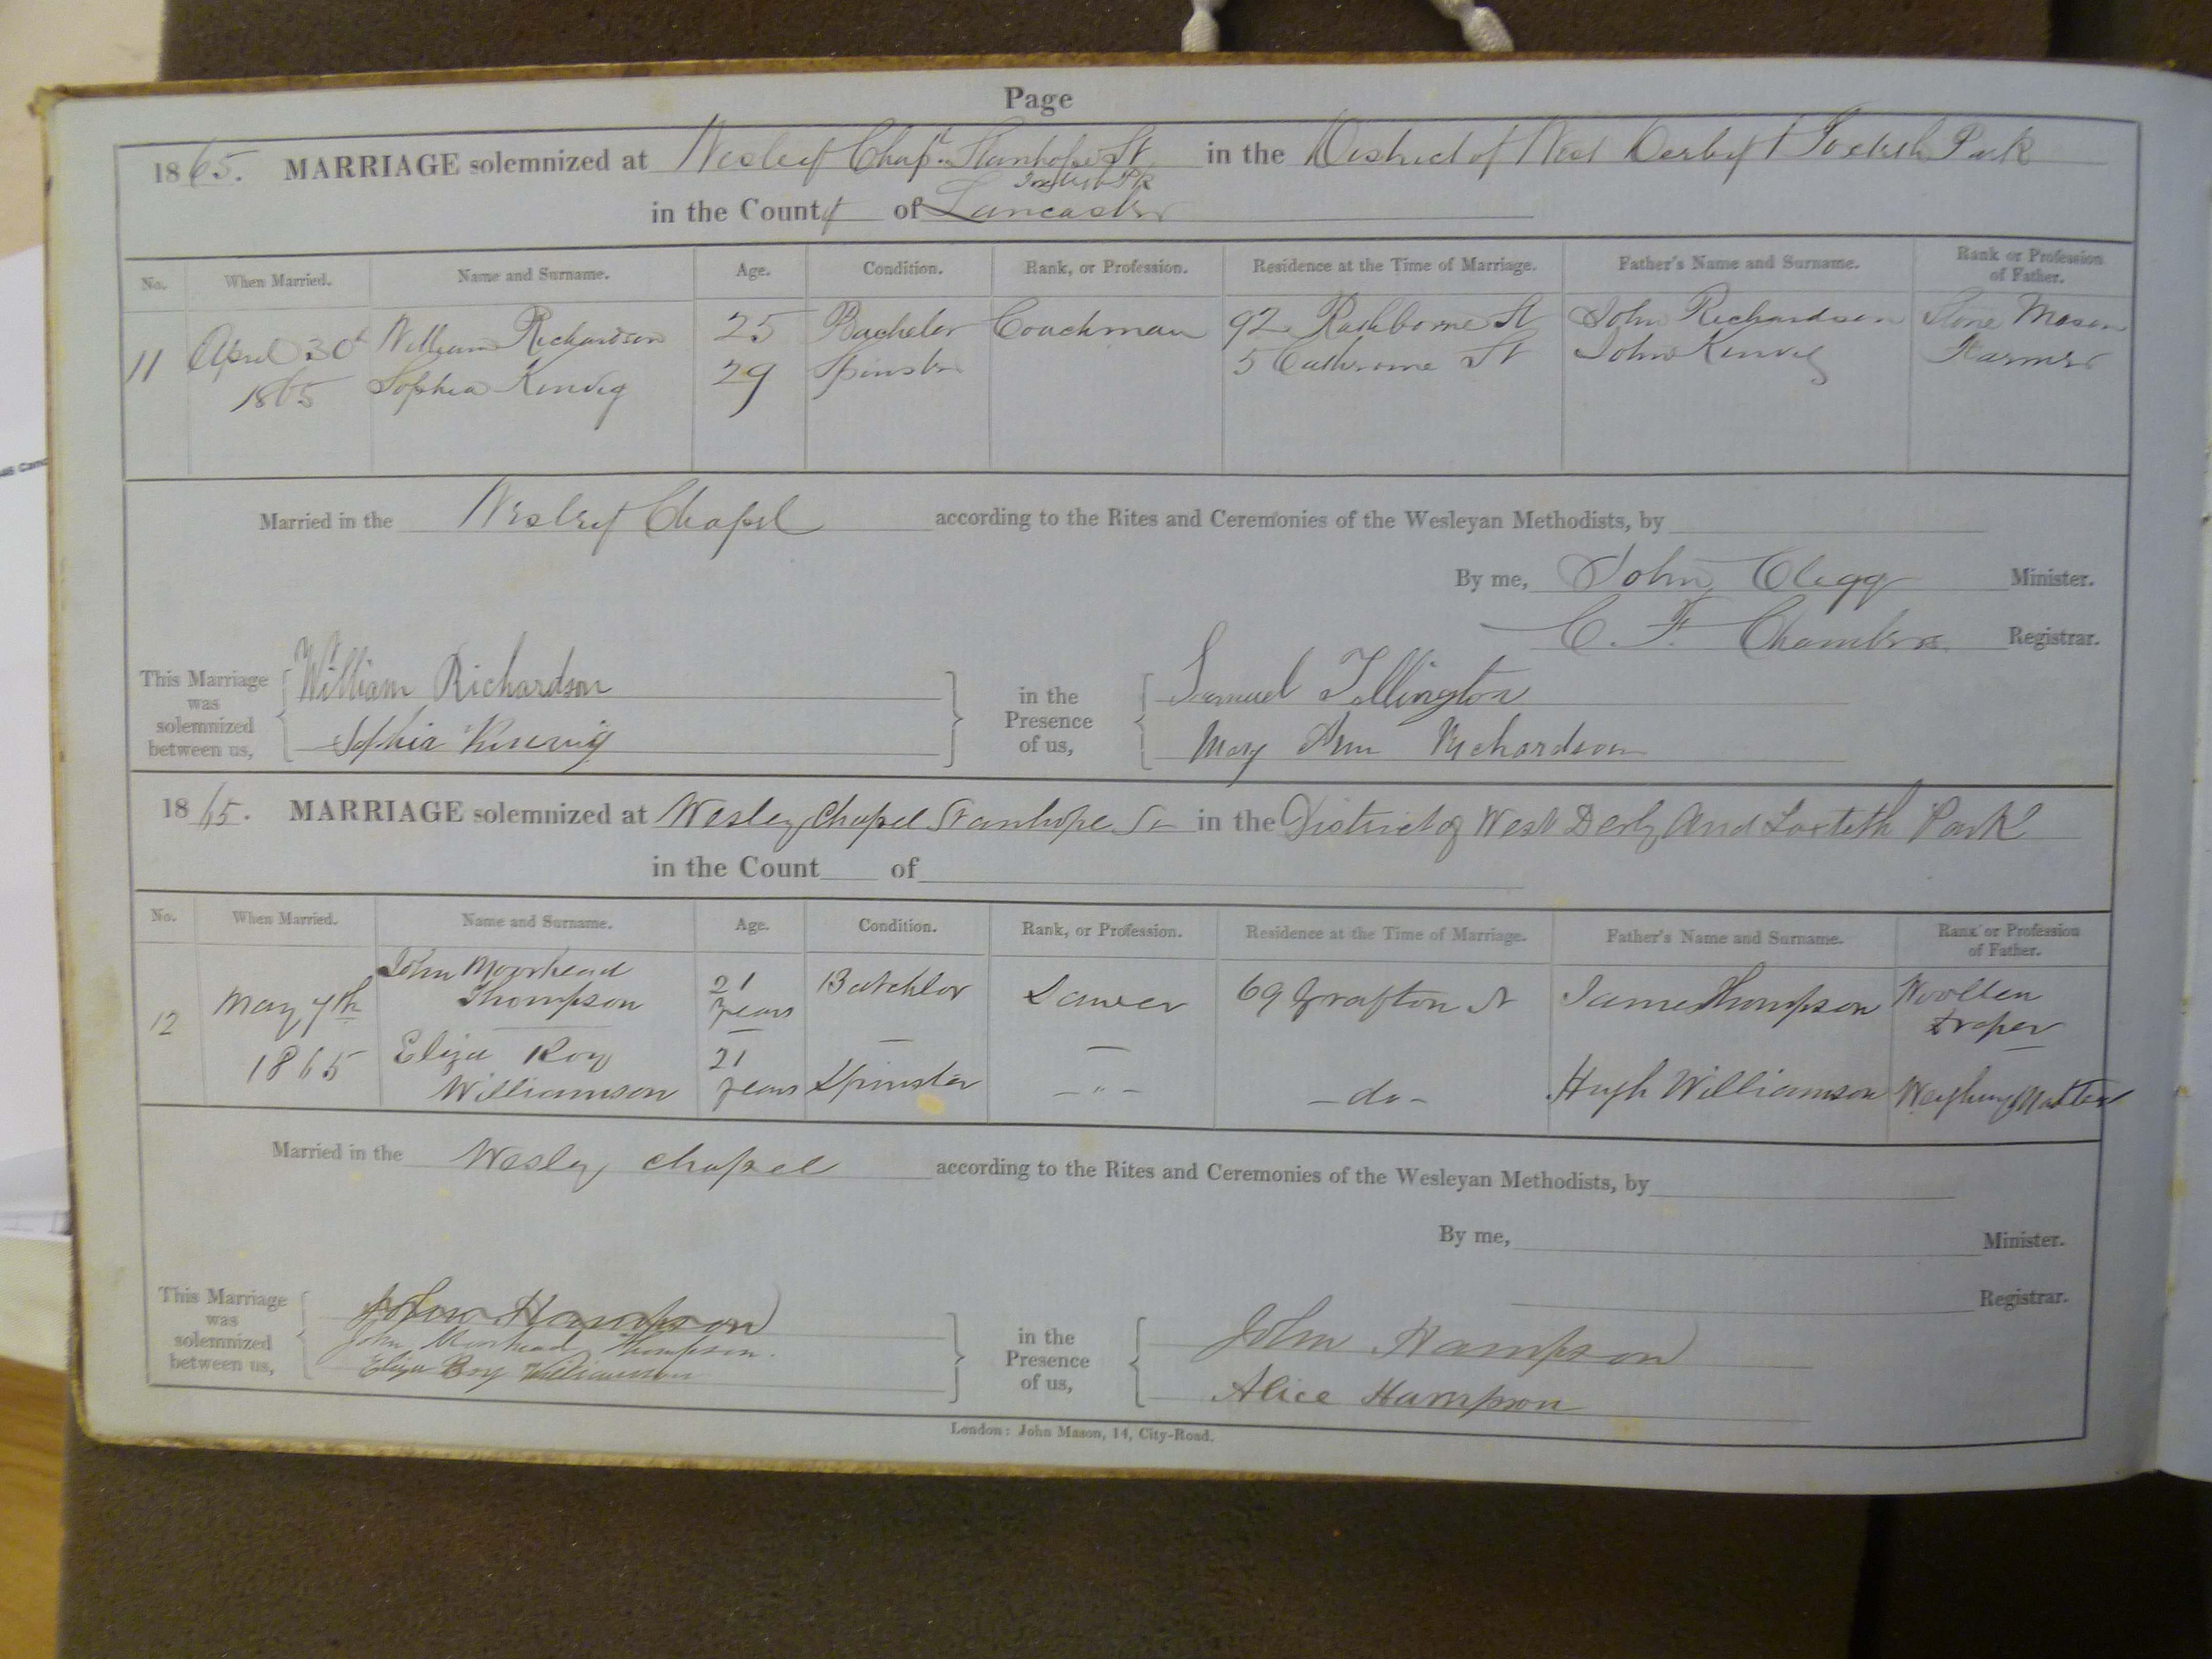 Page
1865. MARRIAGE solemnized at Wesley Chapl. Stanhope St in the District of West Derby & Toxteth Park
Toxteth Pk
in the County of Lancaster
No. When Married. Name and Surname. Age. Condition. Rank, or Profession. Residence at the Time of Marriage. Father's Name and Surname. Rank or Profession of Father.
11 April 30th William Richardson 25 Bachelor Coachman 92 Rathbone St John Richardson Stone Mason
1865 Sophia Kinvig 29 Spinster 5 Catherine St John Kinvig Farmer
Married in the Wesley Chapel according to the Rites and Ceremonies of the Wesleyan Methodists, by
By me, John Clegg Minister.
C. F. Chambers Registrar.
This Marriage was solemnized between us,
William Richardson
Sophia Kinvig
in the Presence of us,
Samuel Tellington
Mary Ann Richardson
1865. MARRIAGE solemnized at Wesley Chapel Stanhope St in the District of West Derby and Toxteth Park
in the Count of
No. When Married. Name and Surname. Age. Condition. Rank, or Profession. Residence at the Time of Marriage. Father's Name and Surname. Rank or Profession of Father.
12 May 7th John Moorhead Thompson 21 years Batchlor 69 Grafton St James Thompson Woollen Draper
1865 Eliza Roy Williamson 21 years Spinster - " - - do - Hugh Williamson Weighing Master
Married in the Wesley chapel according to the Rites and Ceremonies of the Wesleyan Methodists, by
By me, Minister.
Registrar.
This Marriage was solemnized between us,
John Hampson
John Moorhead Thompson.
Eliza Roy Williamson
in the Presence of us,
John Hampson
Alice Hampson
London: John Mason, 14, City-Road.